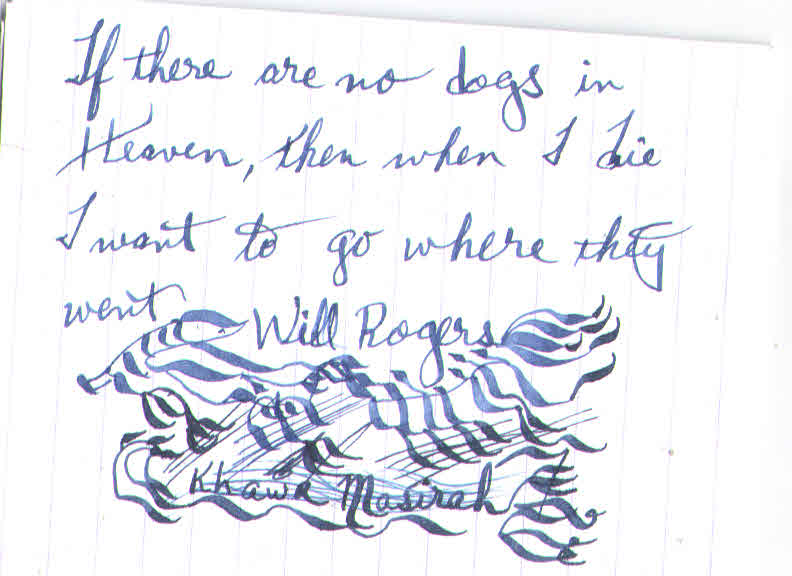 If there are no dogs in
Heaven, then when I die
I want to go where they
went
Will Rogers
Khawr Masirah